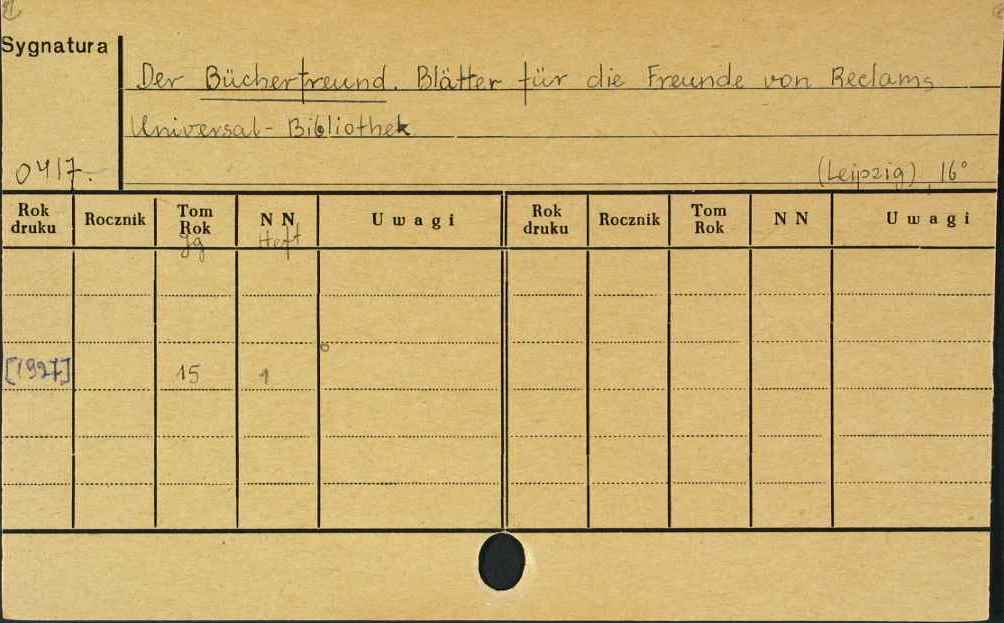 Sygnatura
Der Bücherfreund. Blätter für die Freunde von Reclams
Universal-Bibliothek
0417.
(Leipzig) 16°
Rok druku Rocznik Tom Rok N N Uwagi Rok druku Rocznik Tom Rok N N Uwagi
Jg Heft
[1927] 15 1